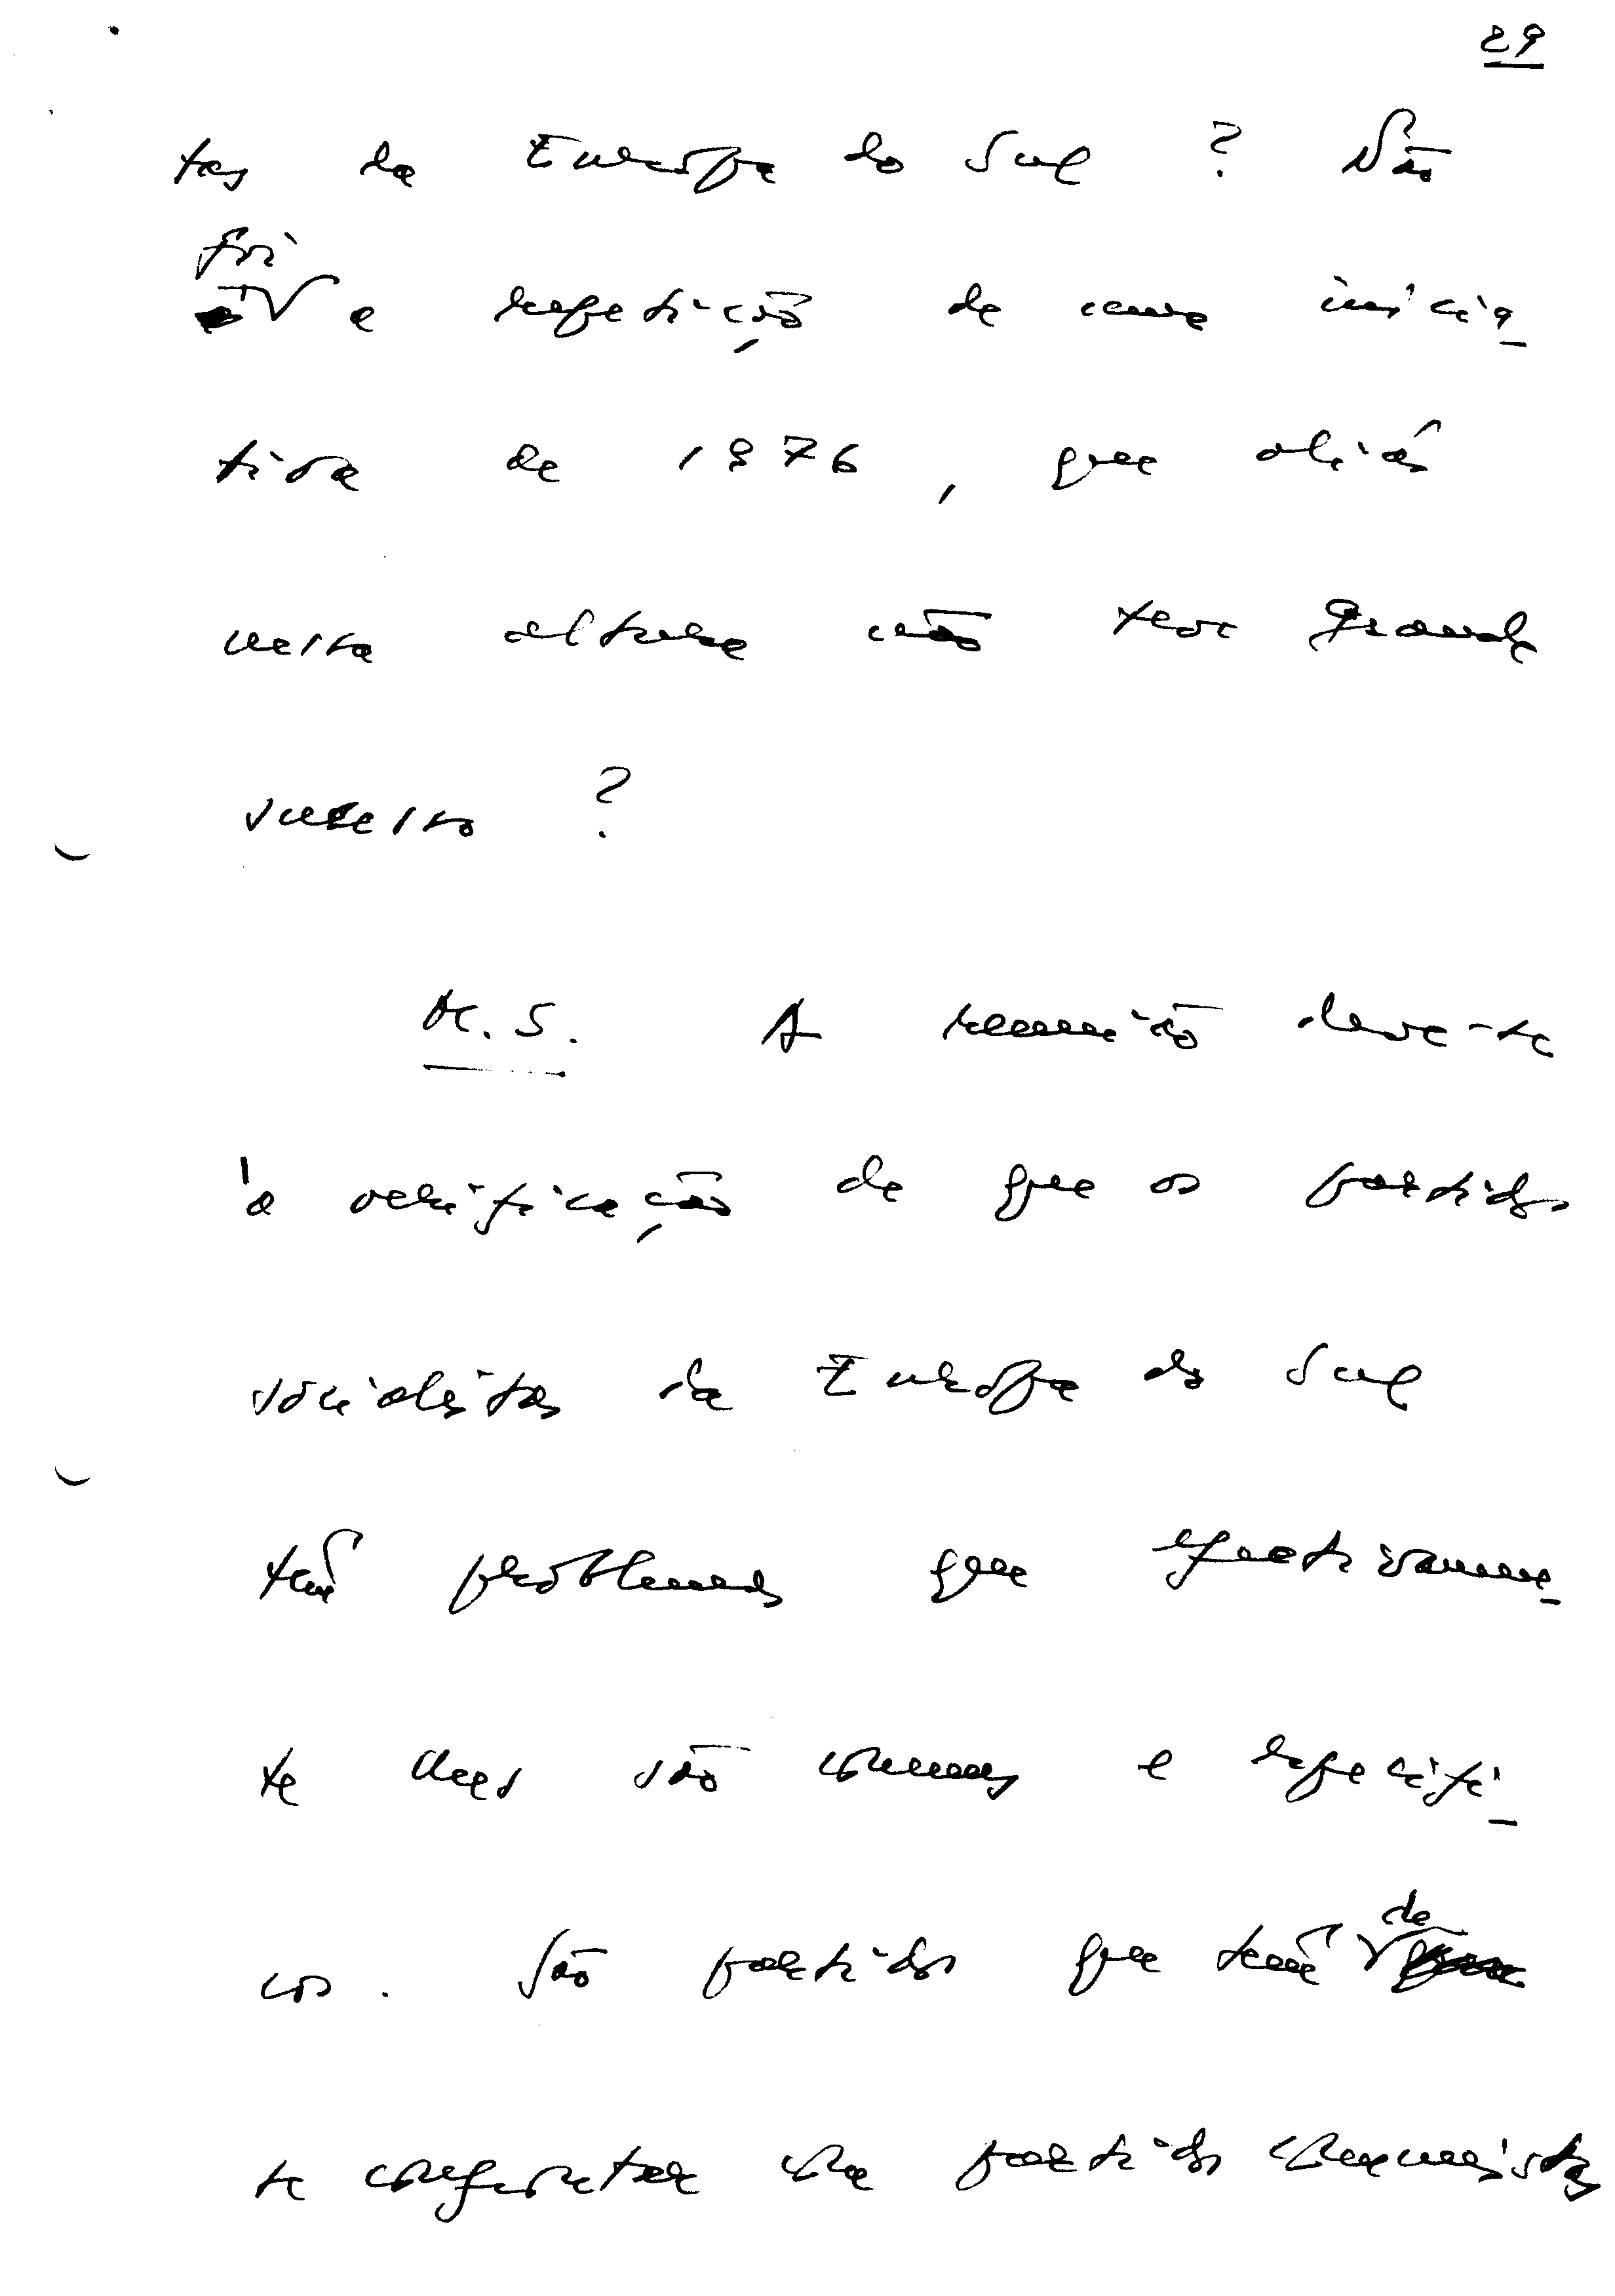 29
tas da Europa do Sul ? Não
foi
a repetição de uma inicia
tiva de 1976 , que aliás
nessa altura não teve grande
sucesso ?
M. S. A reunião deve-se
à verificação de que os partidos
socialistas da Europa do Sul
têm problemas que efectivamen
te lhes são comuns e especifi
cos . São partidos que têm de
se confrontar com partidos comunistas